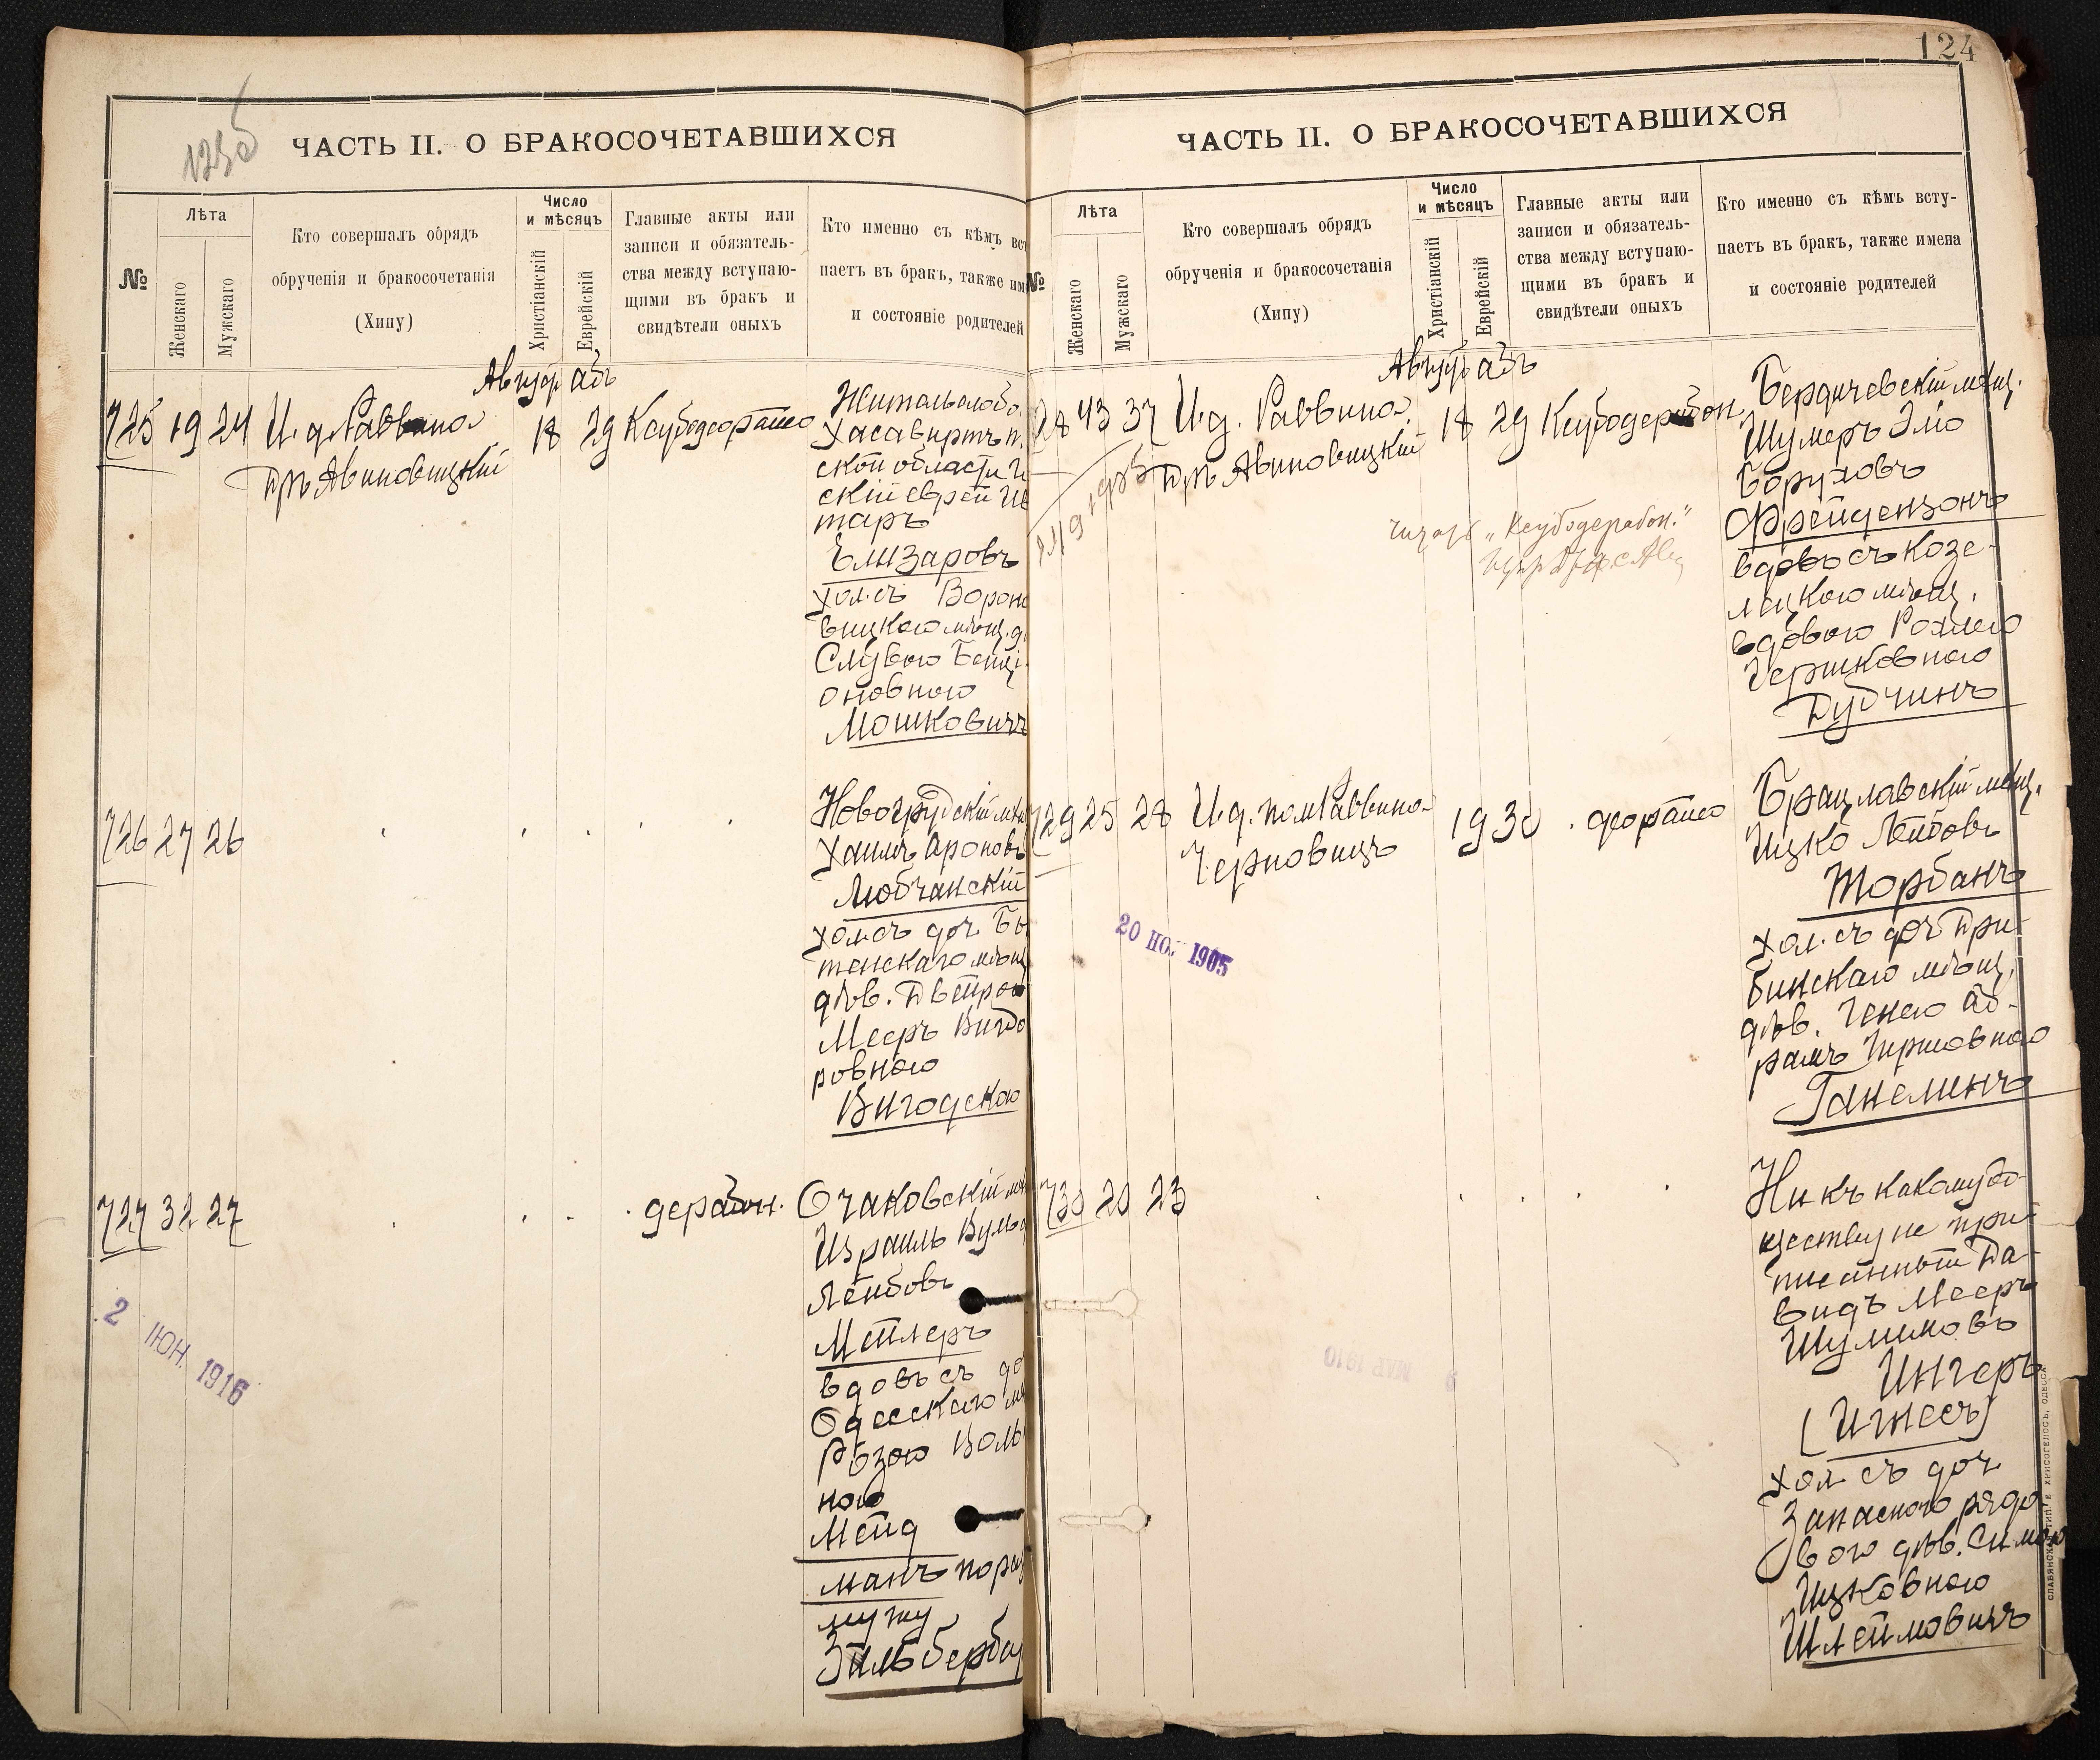 1235
ЧАСТЬ II. О БРАКОСОЧЕТАВШИХСЯ
№
Лѣта
Женскаго
Мужскаго
Кто совершалъ обрядъ
обрученія и бракосочетанія
(Хипу)
Число
и мѣсяцъ
Христіанскій
Еврейскій
Главные акты или
записи и обязатель-
ства между вступаю-
щими въ бракъ и
свидѣтели оныхъ
Кто именно съ кѣмъ вст
паетъ въ бракъ, также им
и состояніе родителей
Август Абъ
725 19 24 И. д. Раввина
Д-ръ Авиновицкій
18 29
Ксубо деорайсо
Житель слобо.
Хасавиртъ
ской области
скій еврей
таръ
Елизаровъ
хол. съ Вороно
вицкаго мѣщ. д
Слувою Бенці
оновною
Мошковичъ
726 27 26
Новогрудскій мѣщ
Хаимъ Ароновъ
Любчанскій
хол. съ доч. Бы
тенскаго мѣщ
дѣв. Двейрою
Месръ Вигдо
ровною
Вигодскою
727 32 27
дерабон.
Очаковскій мѣщ
Израиль Вульф
Лейбовъ
Мейлеръ
вдовъ съ до
Одесскаго мѣ
Розою Воль
ною
Мейд
манъ по раз
мужу
Зильбербер
2 ІЮН. 1916
124
ЧАСТЬ II. О БРАКОСОЧЕТАВШИХСЯ
№
Лѣта
Женскаго
Мужскаго
Кто совершалъ обрядъ
обрученія и бракосочетанія
(Хипу)
Число
и мѣсяцъ
Христіанскій
Еврейскій
Главные акты или
записи и обязатель-
ства между вступаю-
щими въ бракъ и
свидѣтели оныхъ
Кто именно съ кѣмъ всту-
паетъ въ бракъ, также имена
и состояніе родителей
Август Абъ
728 43 37 И. д. Раввина
Д-ръ Авиновицкій
18 29
Ксубо дерабон.
„Ксубо дерабон."
Бердичевскій мѣщ.
Шумеръ Эліо
Боруховъ
Фрейдензонъ
вдовъ съ Козе-
лецкою мѣщ.
вдовою Рохлею
Гершковною
Дубчинъ
729 25 28 И. д. пом. Раввина
Черновицъ
19 30
деорайсо
Брацлавскій мѣщ.
Ицко Лейбовъ
Торбанъ
хол. съ доч. Дри-
бинскаго мѣщ.
дѣв. Генею Аб-
рамъ Гиршовною
Ганелинъ
20 НО. 1905
730 20 23
Ни къ какому об-
ществу не при-
писанный Да-
видъ Месръ
Шулимовъ
Ингеръ
(Игнесъ)
хол. съ доч.
Запасного рядо-
вого дѣв. Симою
Ицковною
Шлеймовичъ
МАР. 1910
СЛАВЯНСКАЯ ТИП. Е. ХРИСОГЕЛОСЪ, ОДЕССА